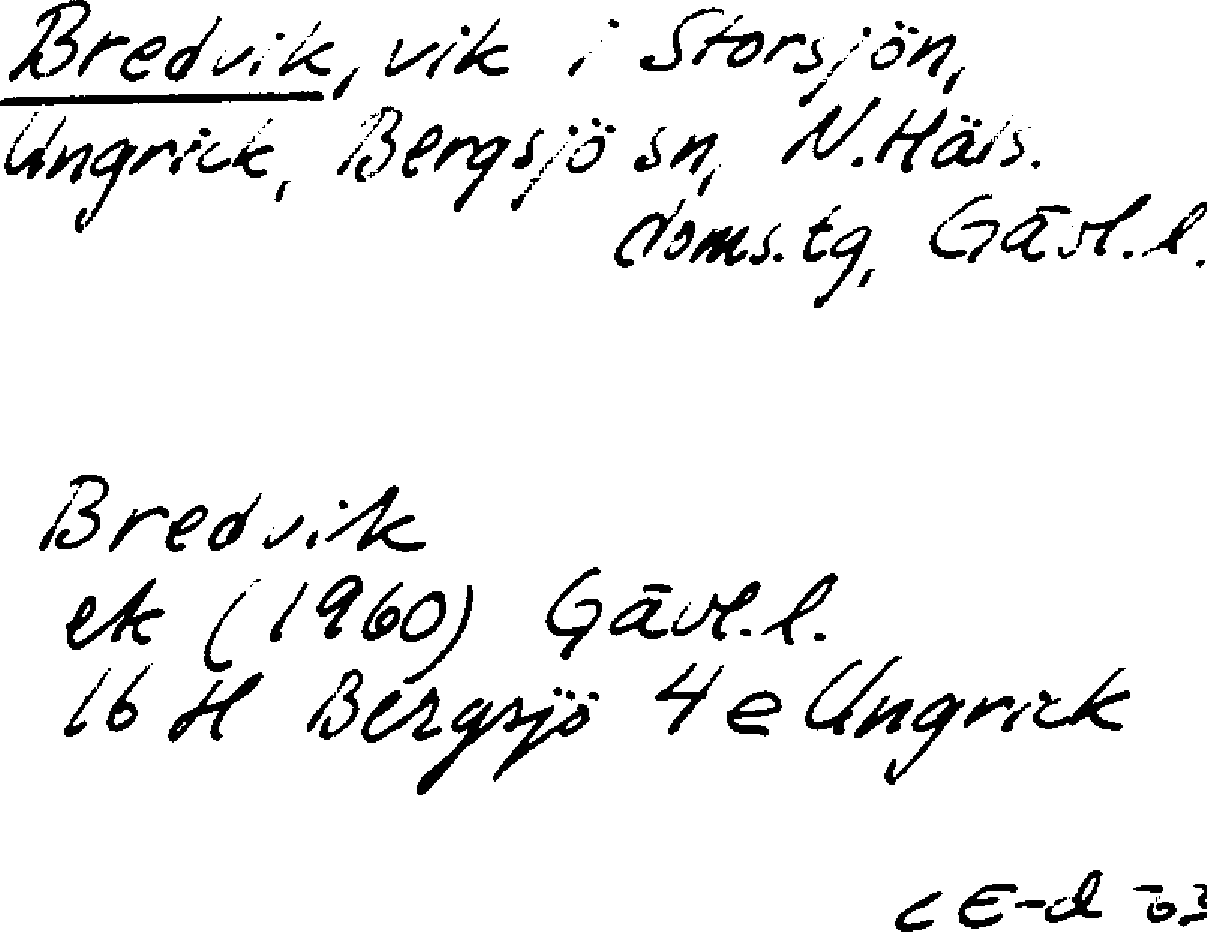 Bredvik, vik i Storsjön,
Ungrick, Bergsjö sn, N.Häls.
doms.tg, Gävl.l.
Bredvik
ek (1960) Gävl.l.
16 H Bergsjö 4 e Ungrick
CE-d 63